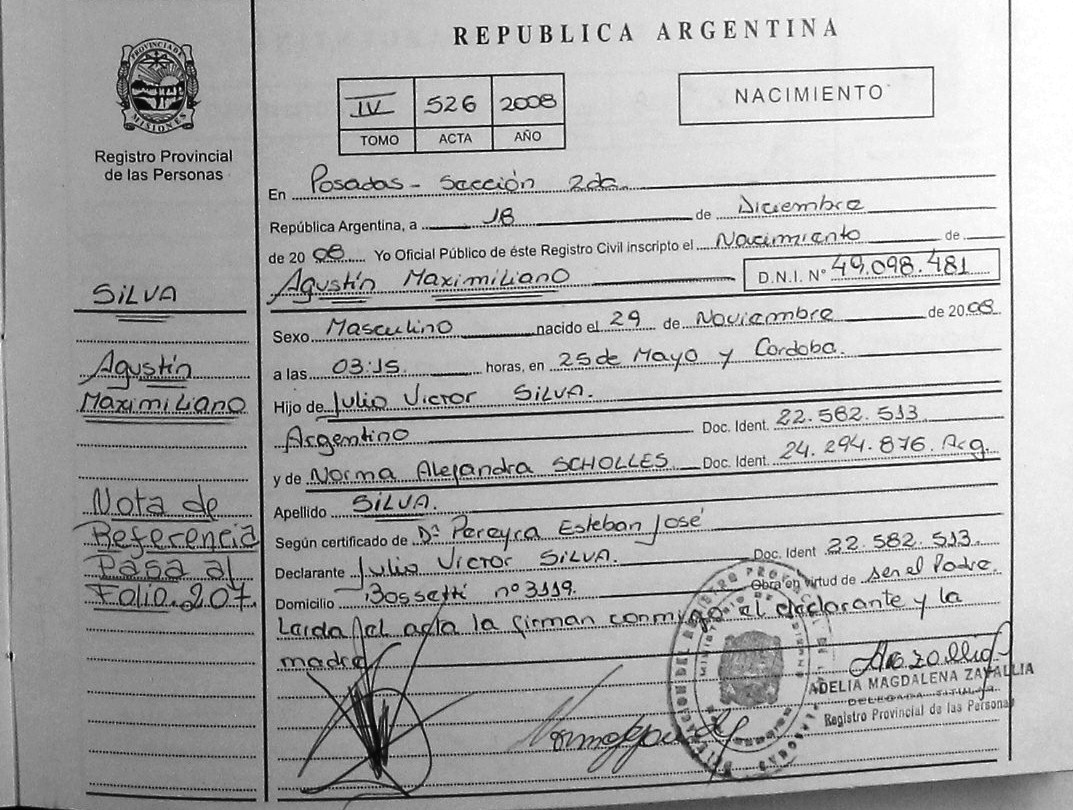 REPUBLICA ARGENTINA
PROVINCIA DE MISIONES
Registro Provincial
de las Personas
IV 526 2008
TOMO ACTA AÑO
NACIMIENTO
En Posadas - Sección 2da.
República Argentina, a 18 de Diciembre
de 2008 Yo Oficial Público de éste Registro Civil inscripto el Nacimiento de
Agustín Maximiliano D.N.I. N° 49.098.481
Sexo Masculino nacido el 29 de Noviembre de 2008
a las 03:15. horas, en 25 de Mayo y Cordoba.
Hijo de Julio Victor SILVA.
Argentino Doc. Ident. 22.582.513
y de Norma Alejandra SCHOLLES Doc. Ident. 24.294.876. Arg.
Apellido SILVA.
Según certificado de Dr. Pereyra Esteban José
Declarante Julio Victor SILVA. Doc. Ident 22.582.513.
Domicilio Bossetti n° 3119. Obra en virtud de ser el Padre.
Leida el acta la firman conmigo el declarante y la
madre
SILVA
Agustín
Maximiliano
Nota de
Referencia
Pasa al
Folio 207.
ADELIA MAGDALENA ZAVALLIA
DELEGADA TITULAR
Registro Provincial de las Personas